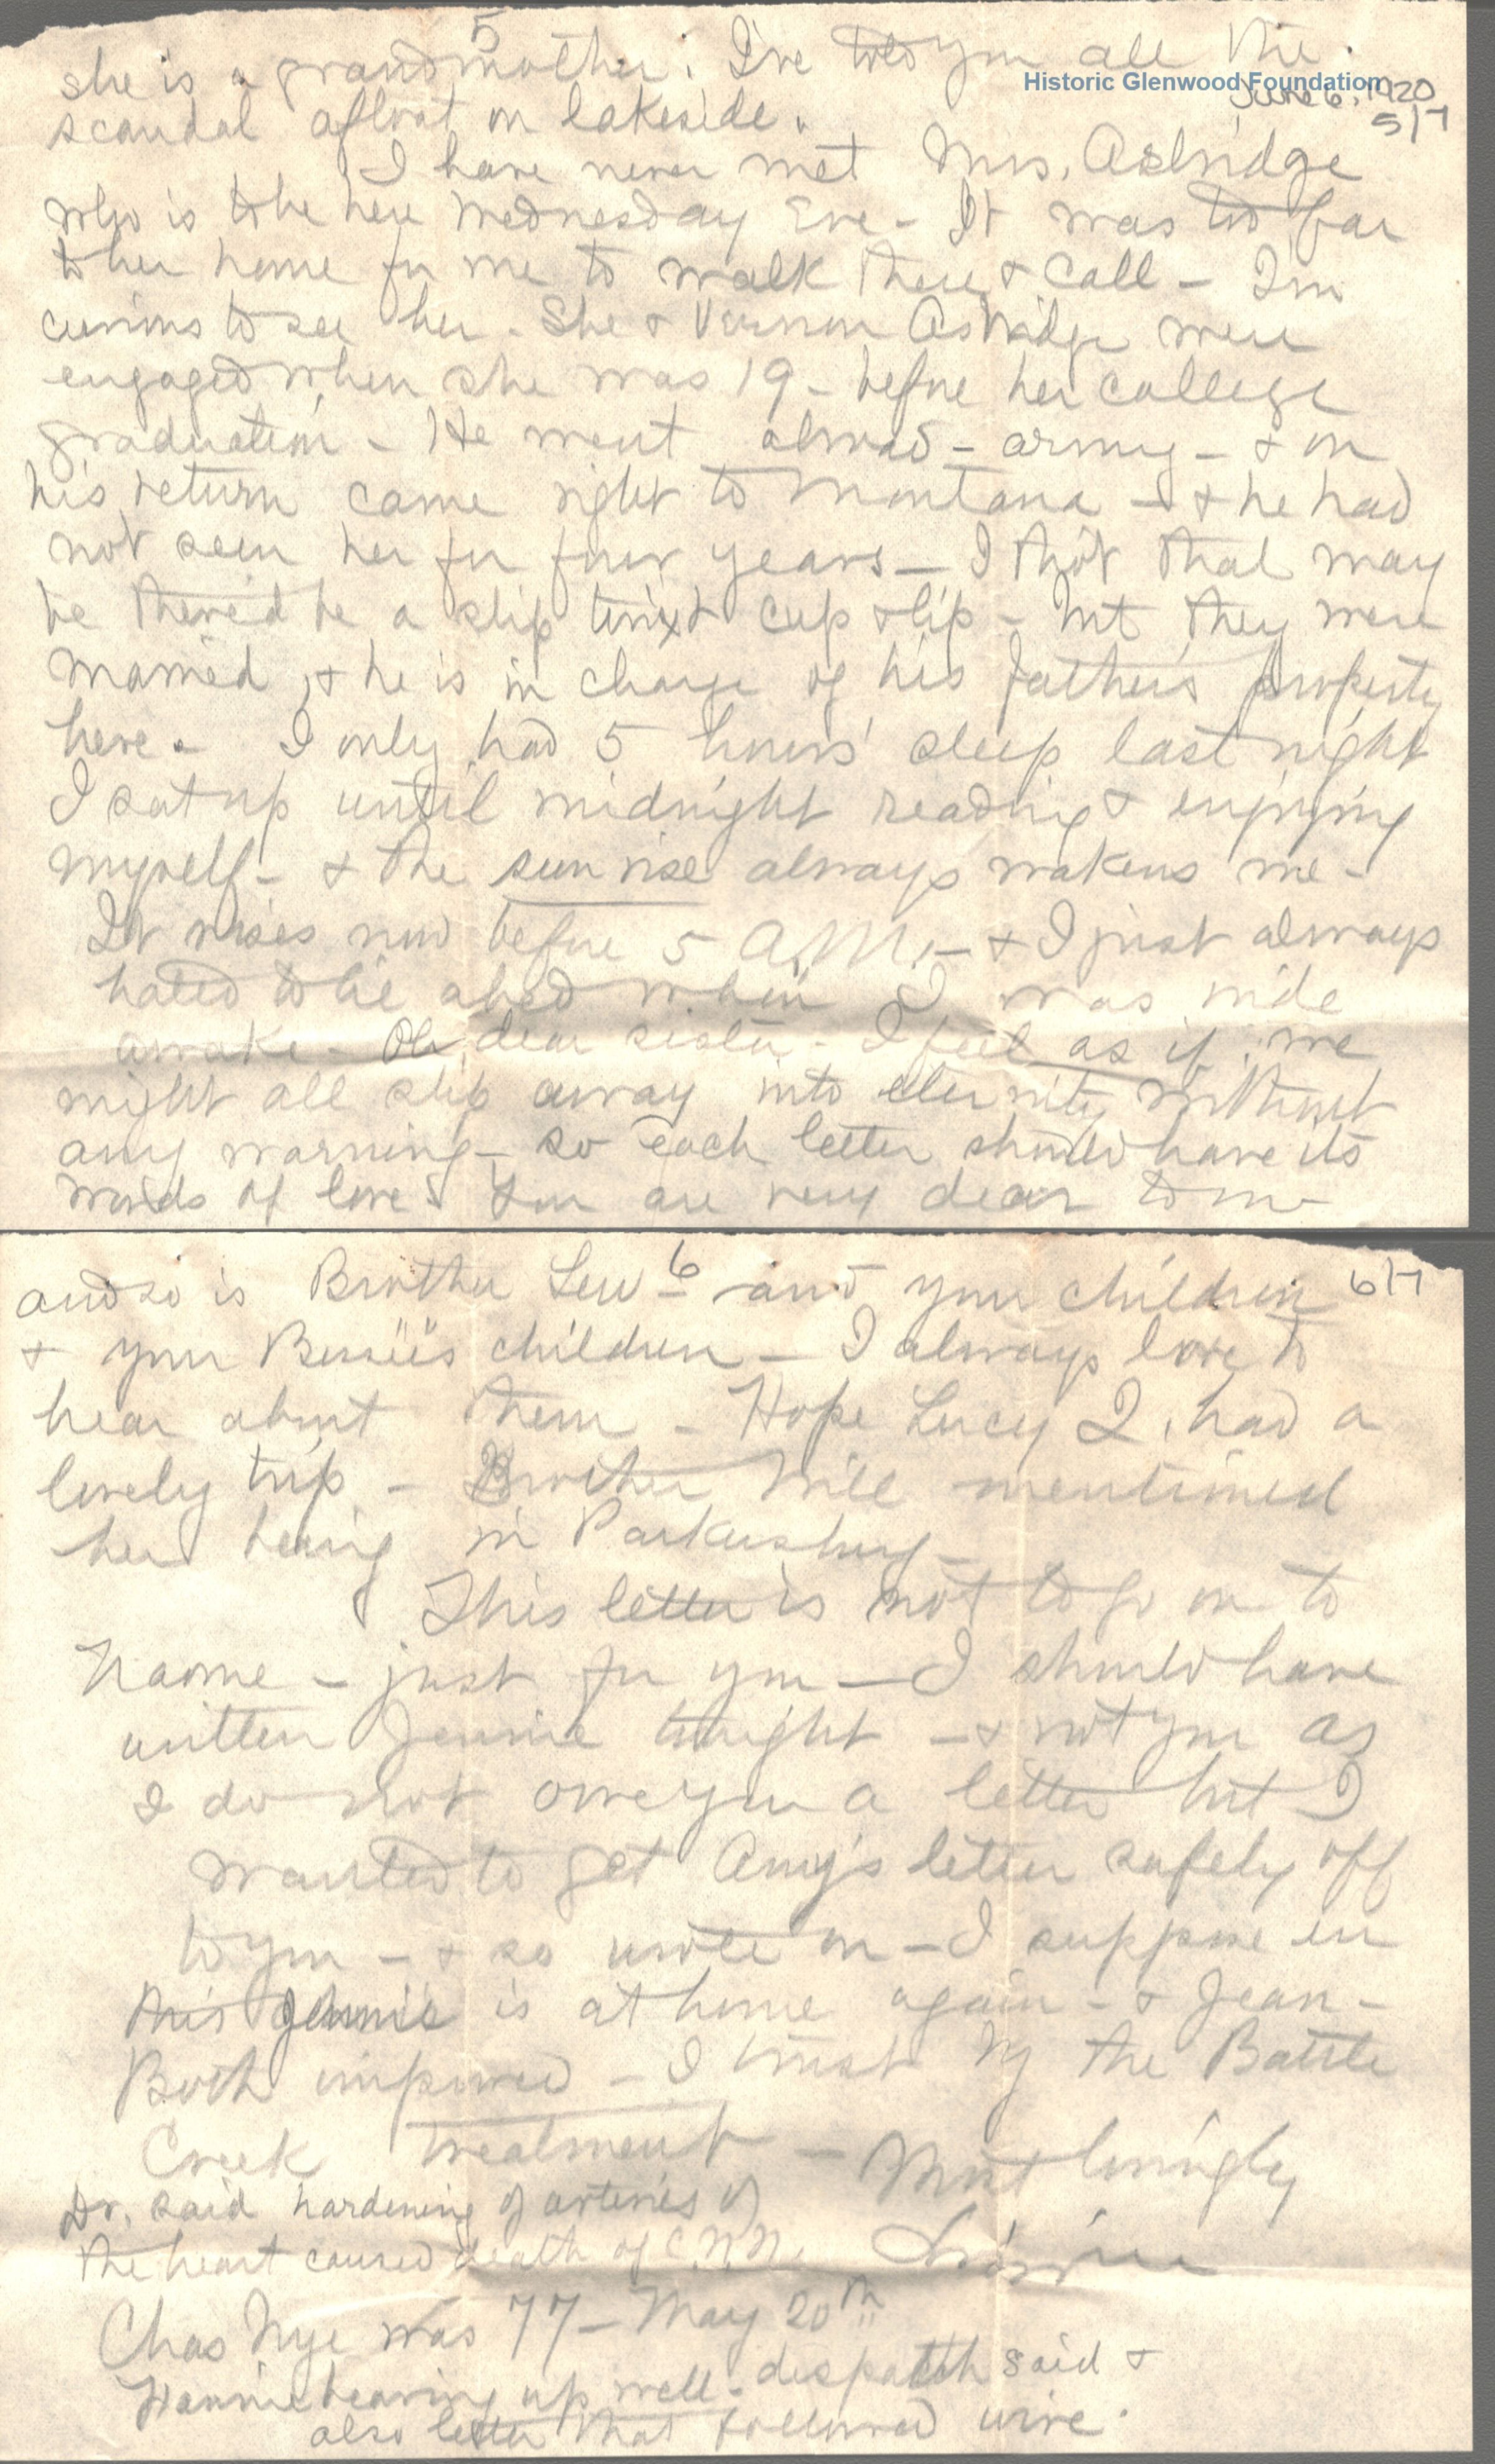 5
she is a grandmother. I've told you all the
Historic Glenwood Foundation
June 6, 1920
5/7
scandal afloat on lakeside.
I have never met Mrs. Aslridge
who is to be here Wednesday Eve - It was too far
to her home for me to walk there & call - I'm
curious to see her - She & Vernon Aslridge were
engaged when she was 19 - before her college
graduation - He went abroad - army - & on
his return came right to Montana - & he had
not seen her for four years - I tho't that may
be there'd be a slip twixt cup & lip - but they were
married, & he is in charge of his father's property
here - I only had 5 hours' sleep last night
I sat up until midnight reading & enjoying
myself - & the sun rise always wakens me -
It rises now before 5 A.M. - & I just always
hated to lie abed when I was wide
awake - Oh dear sister - I feel as if we
might all slip away into eternity without
any warning - so each letter should have its
words of love - You are very dear to me
6
and so is Brother Lew - and your children 6/7
& your Bessie's children - I always love to
hear about them - Hope Lucy I. had a
lovely trip - Brother Will mentioned
her being in Parkersburg -
This letter is not to go on to
Naome - just for you - I should have
written Jennie tonight - & not you as
I do not owe you a letter but I
wanted to get Amy's letter safely off
to you - & so wrote on - I suppose ere
this Jennie is at home again - & Jean -
Both improved - I trust by the Battle
Creek treatment - Most lovingly
Dr. said hardening of arteries of
the heart caused death of C.N.N.
Chas Nye was 77 - May 20th
Nannie bearing up well - despatch said &
also letter that followed wire.